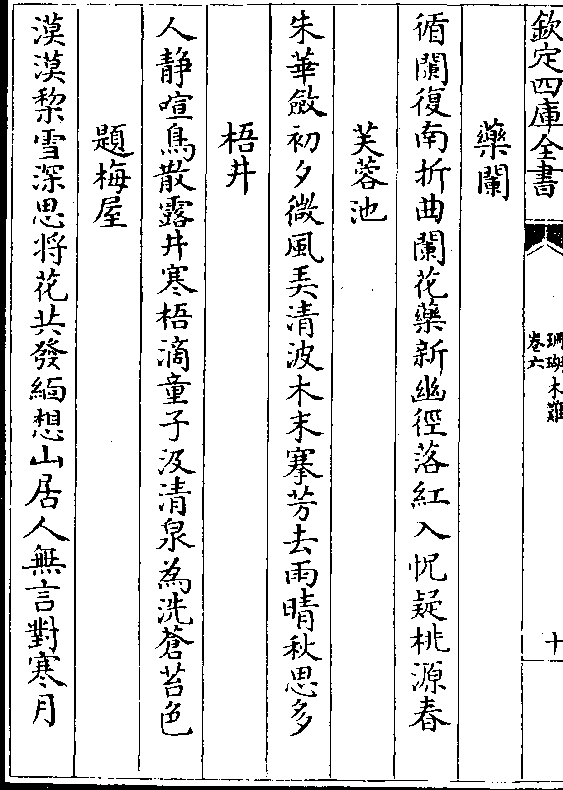 欽定四庫全書
珊瑚木難
卷六
十
藥闌
循闌復南折曲闌花藥新幽徑落紅入怳疑桃源春
芙蓉池
朱華斂初夕微風弄清波木末搴芳去雨晴秋思多
梧井
人静喧鳥散露井寒梧滴童子汲清泉為洗蒼苔色
題梅屋
漠漠梨雪深思将花共發緬想山居人無言對寒月